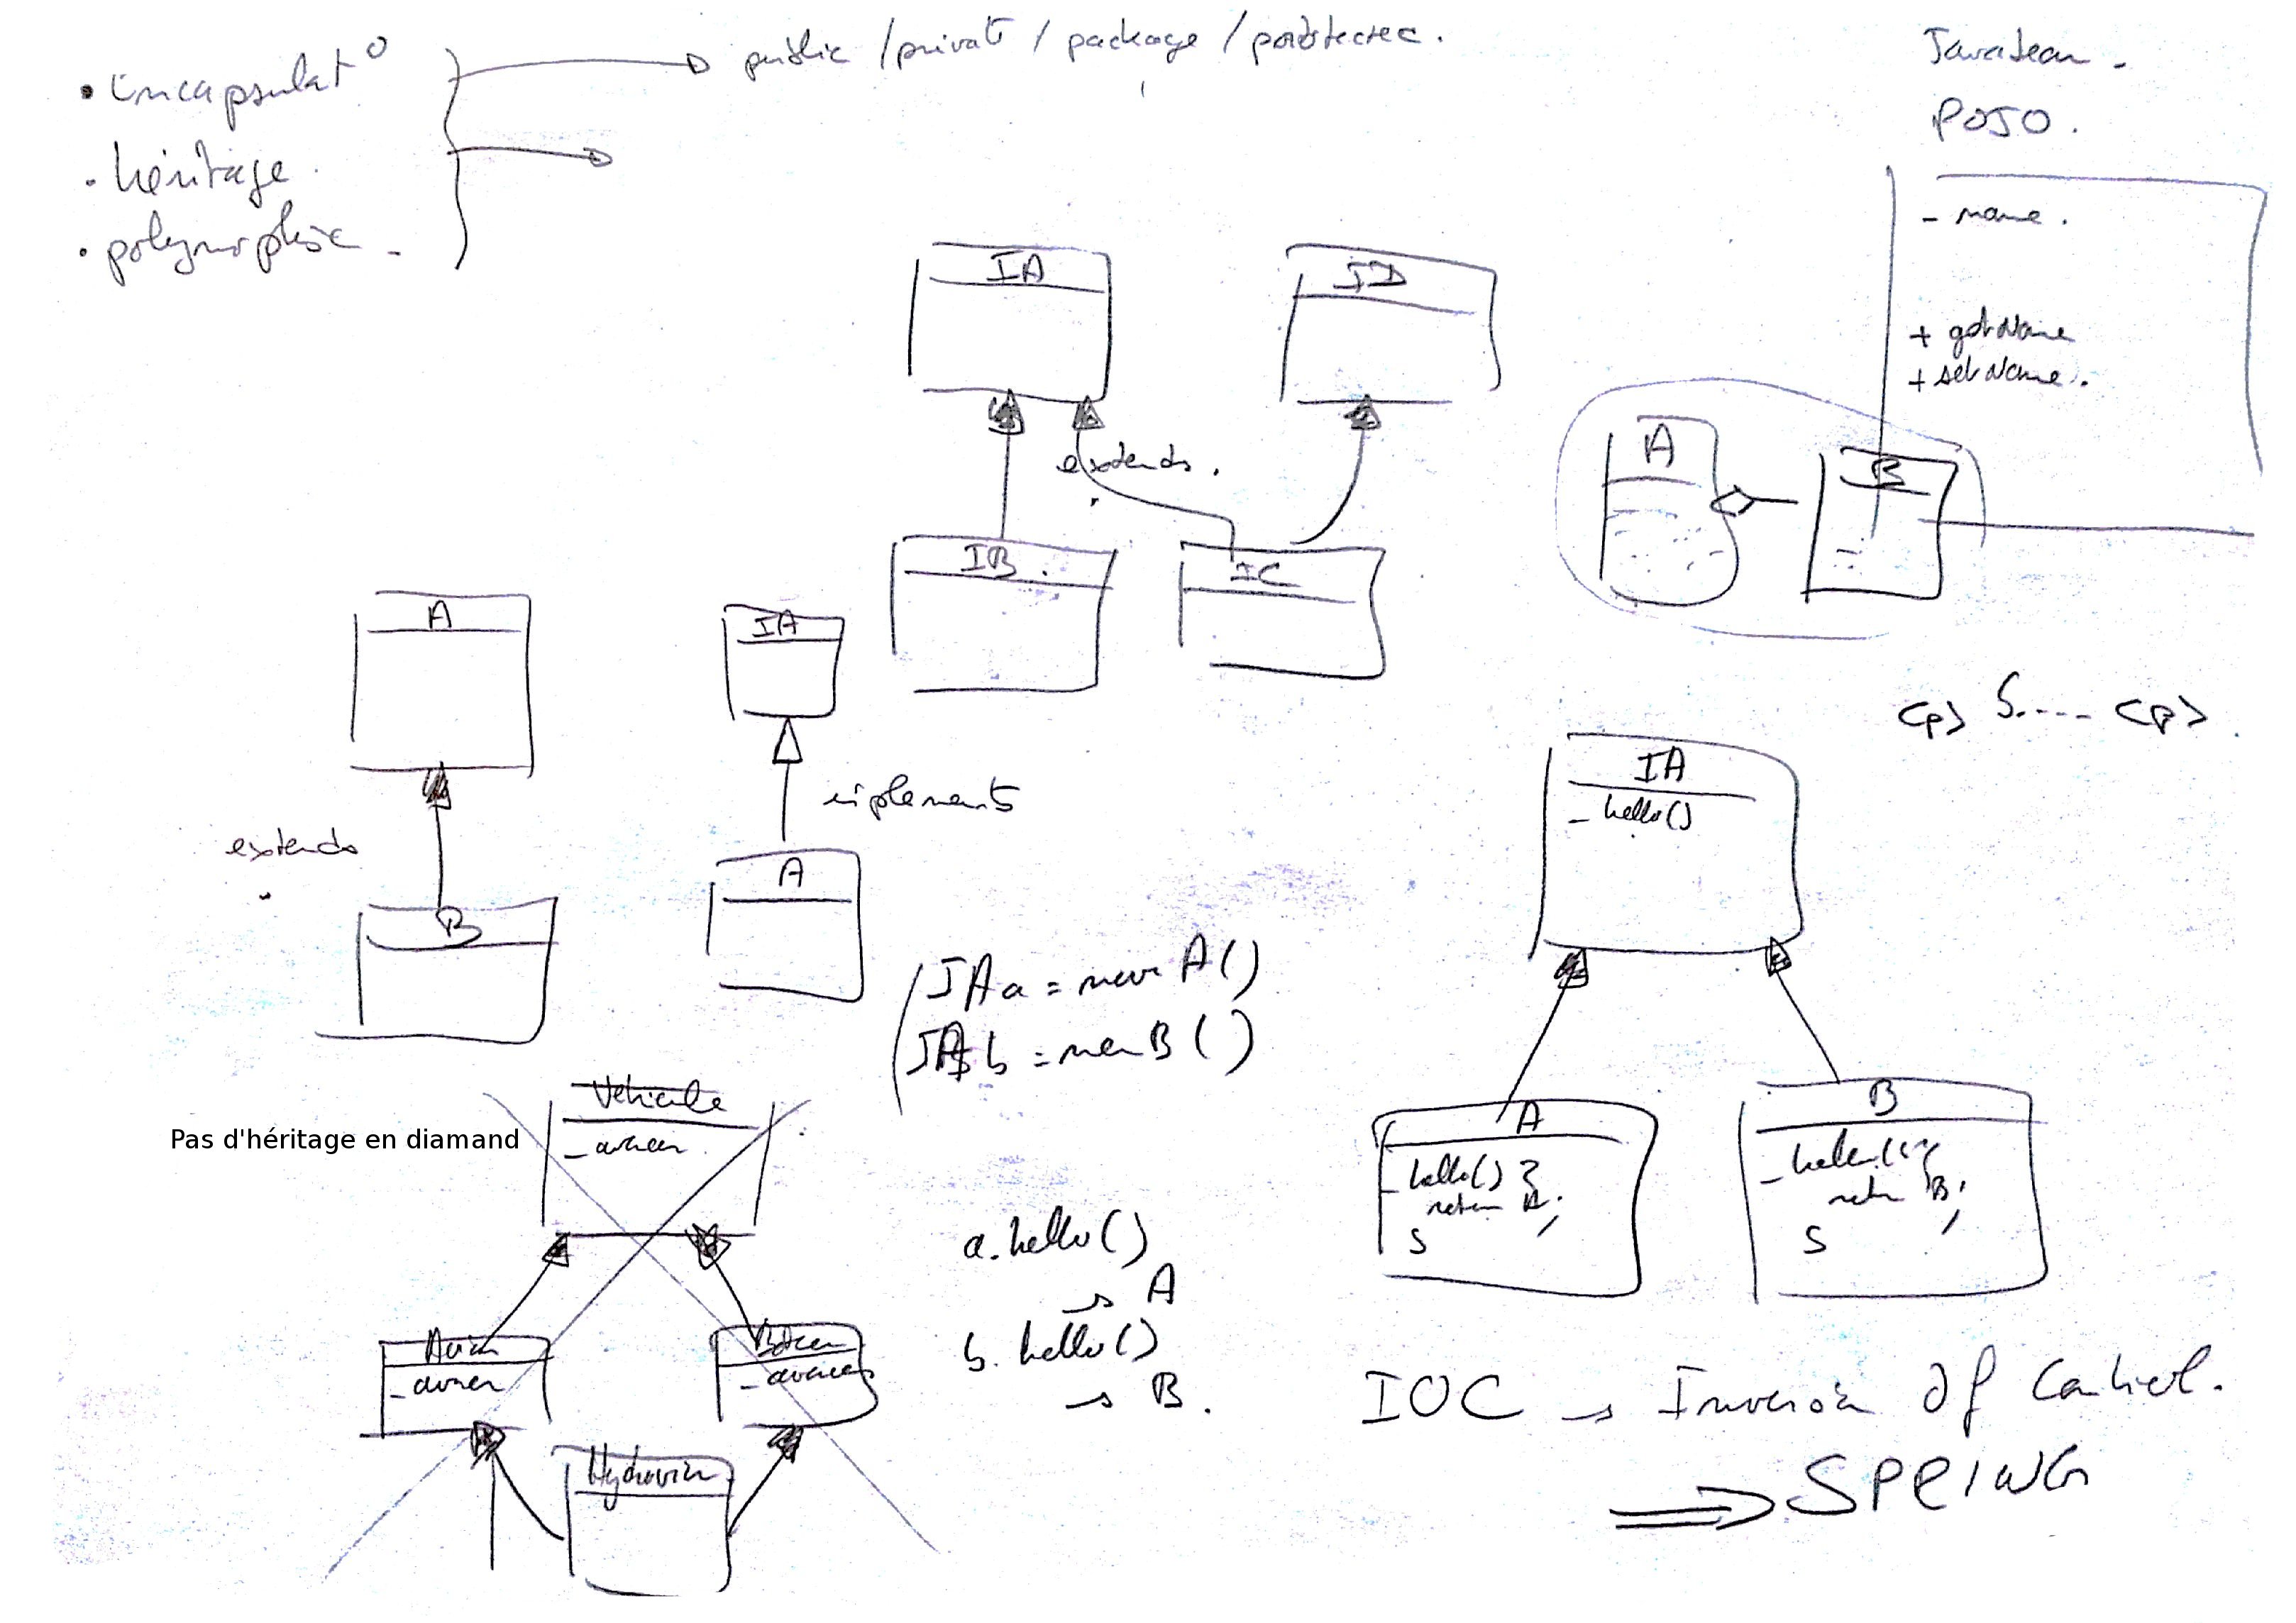 • Encapsulat°
• héritage.
• polymorphisme -
public / private / package / protected.
Javabean -
POJO.
- name.
+ getName
+ setName.
IA
ID
extends.
IB.
IC
A
B
A
extends
B
IA
implements
A
<p> S.... <p>
IA
- hello()
A
- hello() {
return A;
B
- hello() {
return B;
IA a = new A()
IA b = new B()
a.hello()
→ A
b.hello()
→ B.
Pas d'héritage en diamand
Vehicule
- avancer
Avion
- avancer
Bateau
- avancer
Hydravion
IOC → Inversion Of Control.
⇒ SPRING